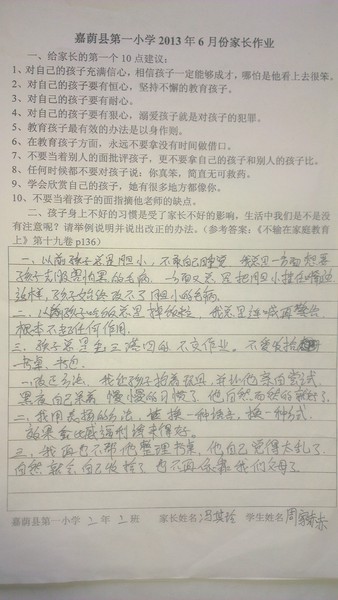 嘉荫县第一小学 2013 年 6 月份家长作业
一、给家长的第一个 10 点建议：
1、对自己的孩子充满信心，相信孩子一定能够成才，哪怕是他看上去很笨。
2、对自己的孩子要有恒心，坚持不懈的教育孩子。
3、对自己的孩子要有耐心。
4、对自己的孩子要有狠心，溺爱孩子就是对孩子的犯罪。
5、教育孩子最有效的办法是以身作则。
6、在教育孩子方面，永远不要拿没有时间做借口。
7、不要当着别人的面批评孩子，更不要拿自己的孩子和别人的孩子比。
8、任何时候都不要对孩子说：你真笨，简直无可救药。
9、学会欣赏自己的孩子，她有很多地方都像你。
10、不要当着孩子的面指摘他老师的缺点。
二、孩子身上不好的习惯是受了家长不好的影响，生活中我们是不是没
有注意呢？请举例说明并说出改正的办法。（参考答案：《不输在家庭教育
上》第十九卷 p136）
一、以前孩子总是胆小，不敢自己睡觉 我总是一方面想要
孩子克服害怕黑的毛病，一方面又总是把胆小挂在嘴边
这样，孩子始终改不了胆小的毛病。
二、以前孩子吃饭总是掉饭粒，我总是连喊再
根本不起任何作用。
三、孩子总是丢三落四的 不交作业。不爱收拾
书桌、书包。
一、改正方法，我让孩子抱着玩具，并让他尝试
黑夜自己 慢慢的习惯了，他自然而然的就好了。
二、我用表扬的方法，换一种话，换一种方式
效果 比威逼利诱来得好。
三、我再也不帮他整理书桌，他自己觉得太乱了
自然就会自己收拾了 也不再依靠我们父母了。
嘉荫县第一小学 2 年 3 班 家长姓名 冯 学生姓名 周